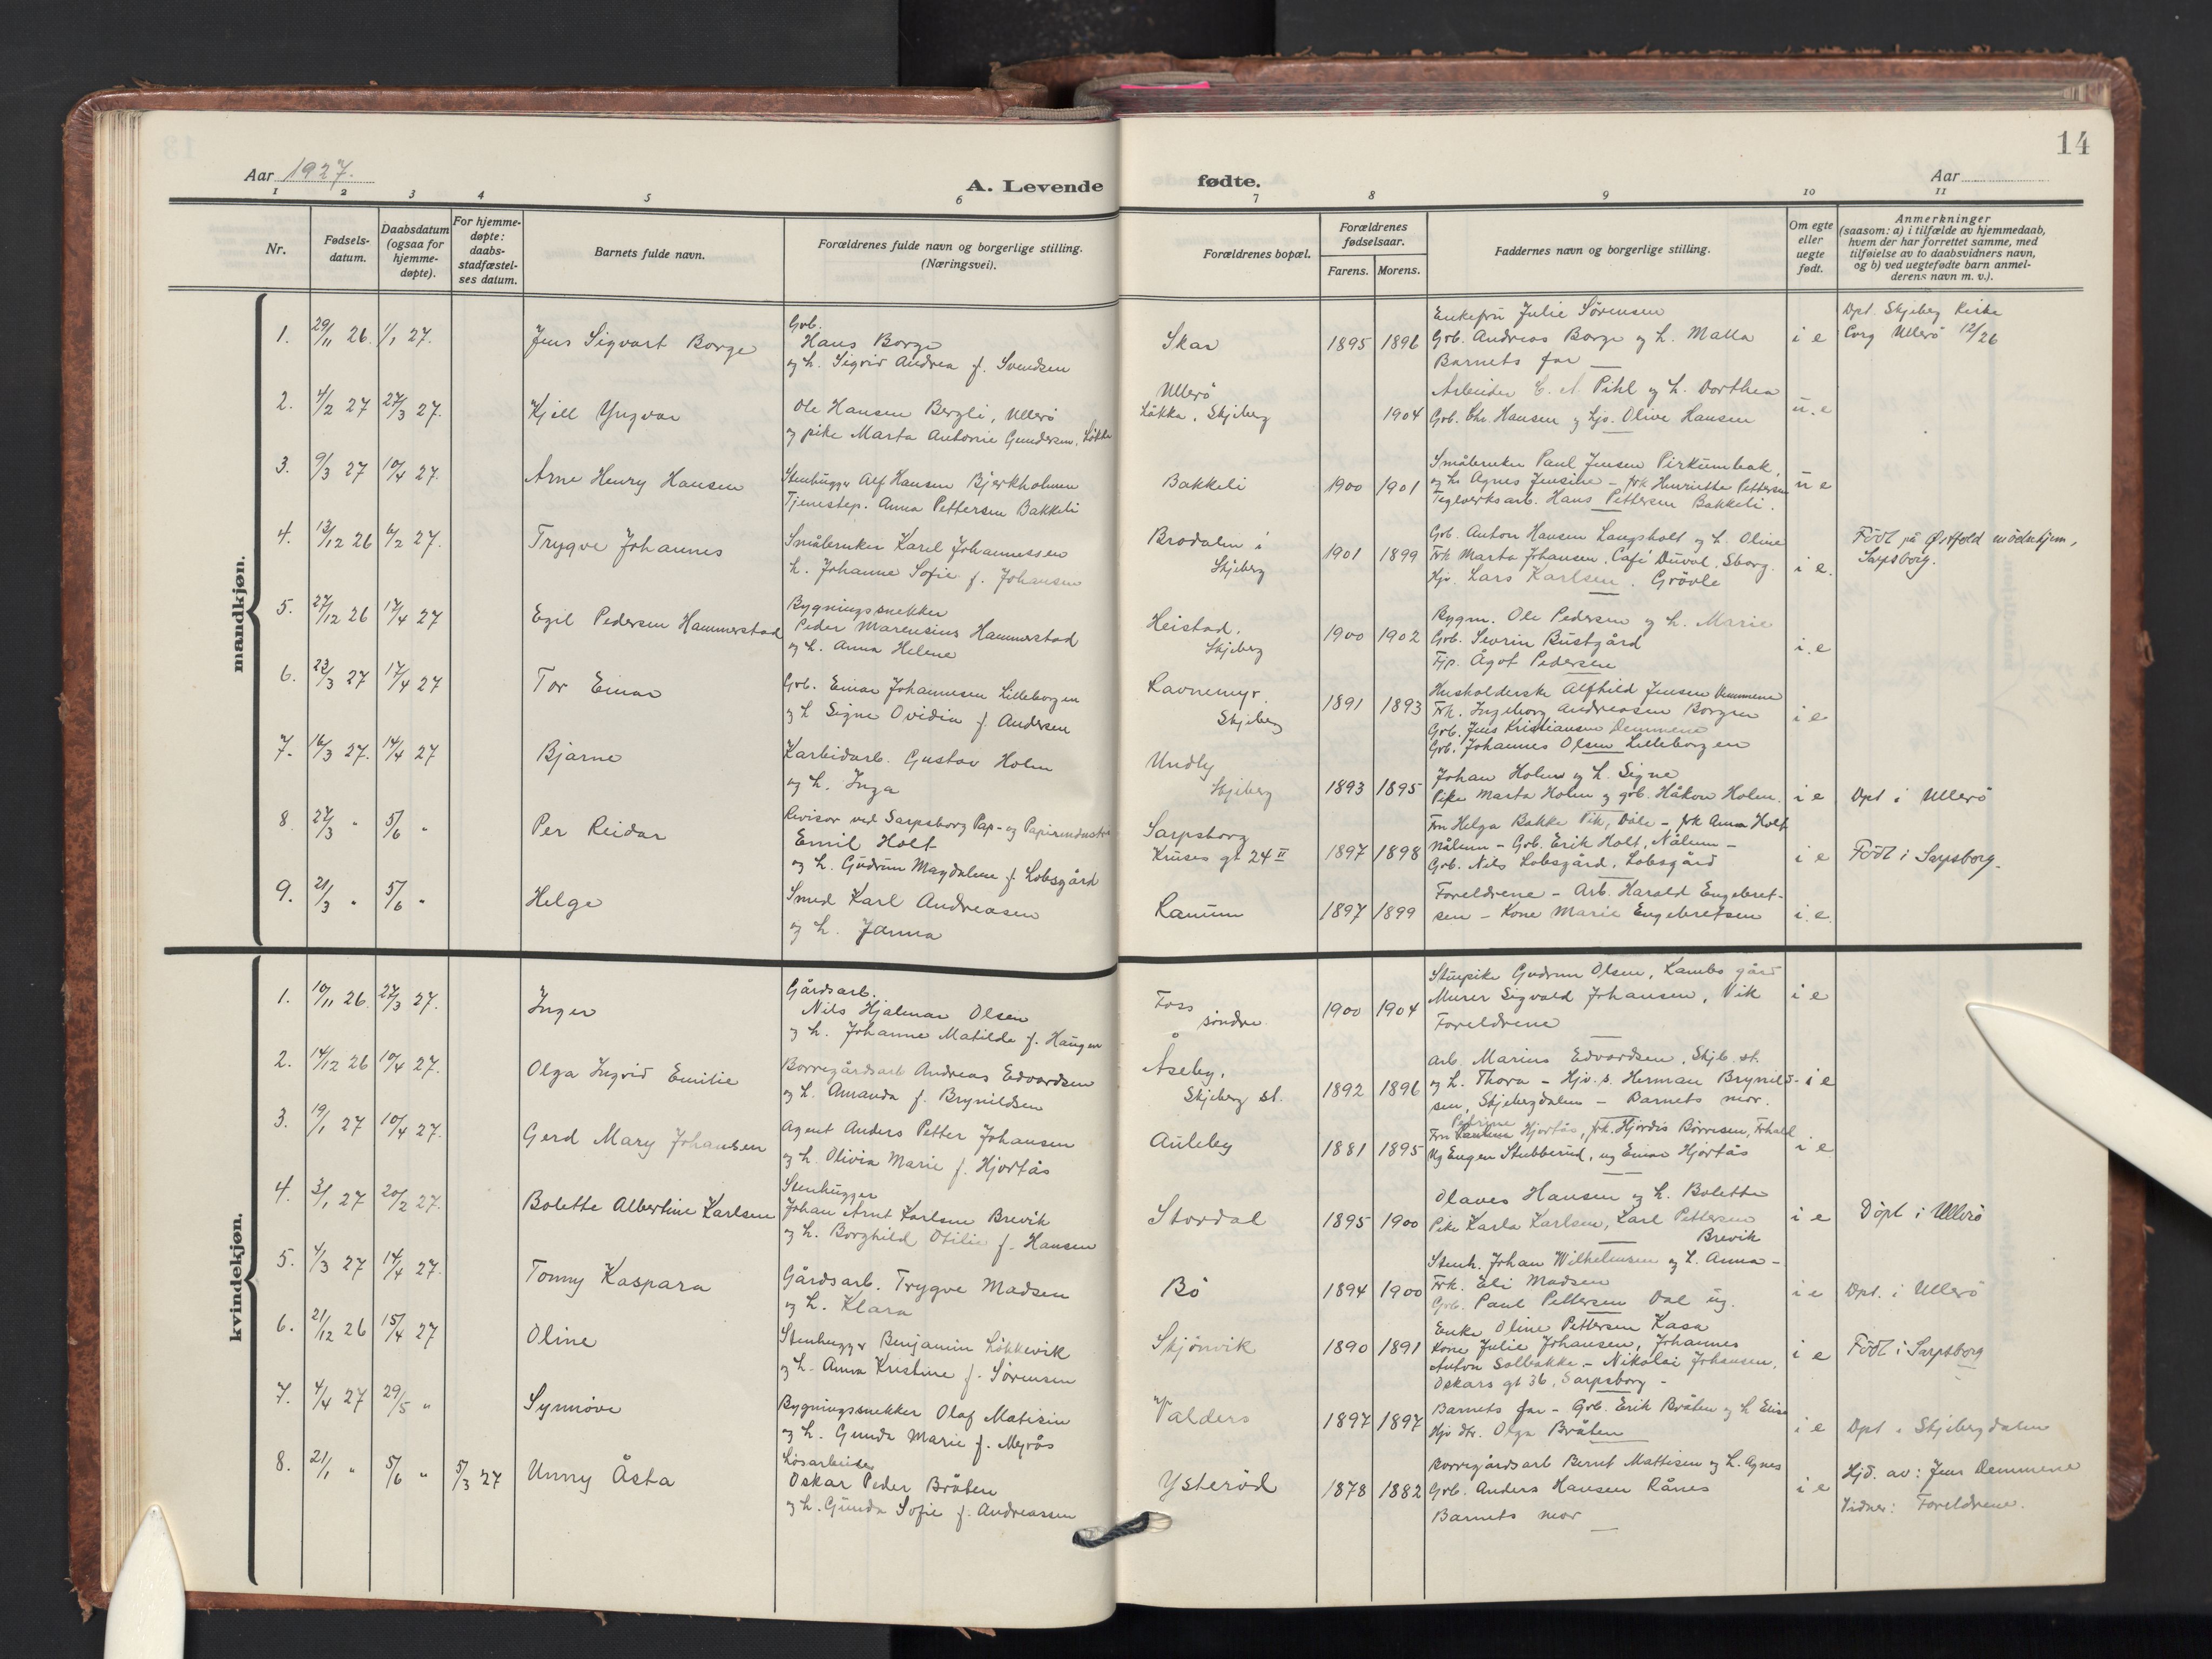 14
Aar 1927.
A. Levende
fødte.
Aar
1 2 3 4 5 6 7 8 9 10 11
Nr.
Fødsels-
datum.
Daabsdatum
(ogsaa for
hjemme-
døpte).
For hjemme-
døpte:
daabs-
stadfæstel-
ses datum.
Barnets fulde navn.
Forældrenes fulde navn og borgerlige stilling.
(Næringsvei).
Forældrenes bopæl.
Forældrenes
fødselsaar.
Farens. Morens.
Faddernes navn og borgerlige stilling.
Om egte
eller
uegte
født.
Anmerkninger
(saasom: a) i tilfælde av hjemmedaab,
hvem der har forrettet samme, med
tilføielse av to daabsvidners navn,
og b) ved uegtefødte barn anmel-
derens navn m. v.).
mandkjøn.
1. 29/11 26. 1/1 27.
Jens Sigvart Borge
Grb.
Hans Borge
og h. Sigrid Andrea f. Svendsen
Skar
1895 1896
Enkefru Julie Sørensen
Grb. Andreas Borge og h. Malla
Barnets far
i e
Døpt. Skjeberg Kirke
Ullerö 12/26
2. 4/2 27 27/3 27.
Kjell Yngvar
Ole Hansen Bergli, Ullerö
og pike Marta Antonie Gundersen, Løkka
Ullerö
Løkka, Skjeberg
1904
Arbeider C. A. Pihl og h. Dorthea
Grb. Chr. Hansen og hjv. Olive Hansen
u. e
3. 9/3 27 10/4 27.
Arne Henry Hansen
Stenhugger Alf Hansen Bjerkholmen
Tjenestep. Anna Pettersen Bakkeli
Bakkeli
1900 1901
Småbruker Paul Jensen Pirkumbak,
og h. Agnes Jensine - frk Henriette Pettersen
Teglverksarb. Hans Pettersen Bakkeli.
u e
4. 13/12 26 6/2 27.
Trygve Johannes
Småbruker Karel Johannessen
h. Johanne Sofie f. Johansen
Brodalen i
Skjeberg
1901 1899
Grb. Anton Hansen Langsholt og h. Oline
Frk Marta Johansen, Café Duval, Sborg.
Hjv. Lars Karlsen, Grövle
i e.
Født på Østfold mödrehjem,
Sarpsborg.
5. 27/12 26 17/4 27
Egil Pedersen Hammerstad
Bygningssnekker
Peder Marensius Hammerstad
og h. Anna Helene
Heistad,
Skjeberg
1900 1902
Bygm. Ole Pedersen og h. Marie
Grb. Sevrin Bustgård
Tjp. Ågot Pedersen
i. e
6. 23/3 27 17/4 27
Tor Einar
Grb. Einar Johannesen Lilleborgen
og h Signe Ovidia f. Andersen
Ravnemyr.
Skjeberg
1891 1893
Husholderske Alfhild Jensen Demmene
Frk. Ingeborg Andreasen Borgen
Grb. Jens Kristiansen Demmene
Grb. Johannes Olsen Lilleborgen
i e
7. 16/3 27. 14/4 27
Bjarne
Karbidarb. Gustav Holm
og h. Inga
Undly
Skjeberg
1893 1895
Johan Holm og h. Signe
Pike Marta Holm og grb. Håkon Holm.
i e
Døpt i Ullerö
8. 22/3 " 5/6 "
Per Reidar
Revisor ved Sarpsborg Pap- og Papirindustri
Emil Holt
og h. Gudrun Magdalene f. Lobsgård
Sarpsborg
Kruses gt 24 II
1897 1898
Fru Helga Bakke Vik, Dale - frk Anna Holt
Nålum - Grb. Erik Holt, Nålum -
Grb. Nils Lobsgård, Lobsgård
i e
Født i Sarpsborg.
9. 21/3 " 5/6 "
Helge
Smed Karl Andreasen
og h. Janna
Ranum
1897 1899
Foreldrene - Arb. Harald Engebret-
sen - Kone Marie Engebretsen
i. e.
kvindekjøn.
1. 10/11 26. 27/3 27.
Inger
Gårdsarb.
Nils Hjalmar Olsen
og h. Johanne Matilde f. Haugen
Foss
söndre
1900 1904
Stuepike Gudrun Olsen, Kambo gård
Murer Sigvald Johansen, Vik
Foreldrene
i e
2. 14/12 26 10/4 27.
Olga Ingrid Emilie
Borregårdsarb Andreas Edvardsen
og h. Amanda f. Brynildsen
Åseby,
Skjeberg st.
1892 1896
Arb. Marius Edvardsen, Skjb. st.
og h. Thora - Hjv. s. Herman Brynild-
sen, Skjebergdalen - Barnets mor.
i e
3. 19/1 27 10/4 27.
Gerd Mary Johansen
Agent Anders Petter Johansen
og h. Olivia Marie f. Hjortås
Auleby
1881 1895
Petrine
Fru Hjortås, frk. Hjördis Börresen,
Ug Eugen Stubberud, ug Einar Hjortås
i e
4. 3/1 27 20/2 27.
Bolette Albertine Karlsen
Stenhugger
Johan Arnt Karlsen Brevik
og h. Borghild Otilie f. Hansen
Stordal
1895 1900
Olaves Hansen og h. Bolette
Pike Karla Karlsen, Karl Pettersen
Brevik
i e
Döpt i Ullerö
5. 4/3 27 14/4 27.
Tonny Kaspara
Gårdsarb. Trygve Madsen
og h. Klara
Bö
1894 1900
Stenh. Johan Wilhelmsen og h. Anna -
Frk. Eli Madsen
Grb. Paul Pettersen Dal ug.
i e
Døpt. i Ullerö
6. 21/12 26 15/4 27
Oline
Stenhugger Benjamin Løkkevik
og h. Anna Kristine f. Sörensen
Skjönvik
1890 1891
Enke Oline Pettersen Kasa
Kone Julie Johansen, Johannes
Anton Solbakke - Nikolai Johansen,
Oskars gt 36, Sarpsborg -
i e
Født i Sarpsborg
7. 4/4 27 29/5 "
Synnöve
Bygningssnekker Olaf Matisin
og h. Gunda Marie f. Mejrös
Valders
1897 1897
Barnets far - Grb. Erik Bråten og h Elise
Hjv dtr. Olga Bråten
i e
Døpt i Skjebergdalen
8. 21/1 " 5/6 " 5/3 27
Unny Åsta
Lösarbeider
Oskar Peder Bråten
og h. Gunda Sofie f. Andreassen
Ysteröd
1878 1882
Borregårdsarb Bernt Mattisen og h. Agnes
Grb. Anders Hansen Rånes
Barnets mor
i e
Hjd. av: Jens Demmene
Vidner: Foreldrene.